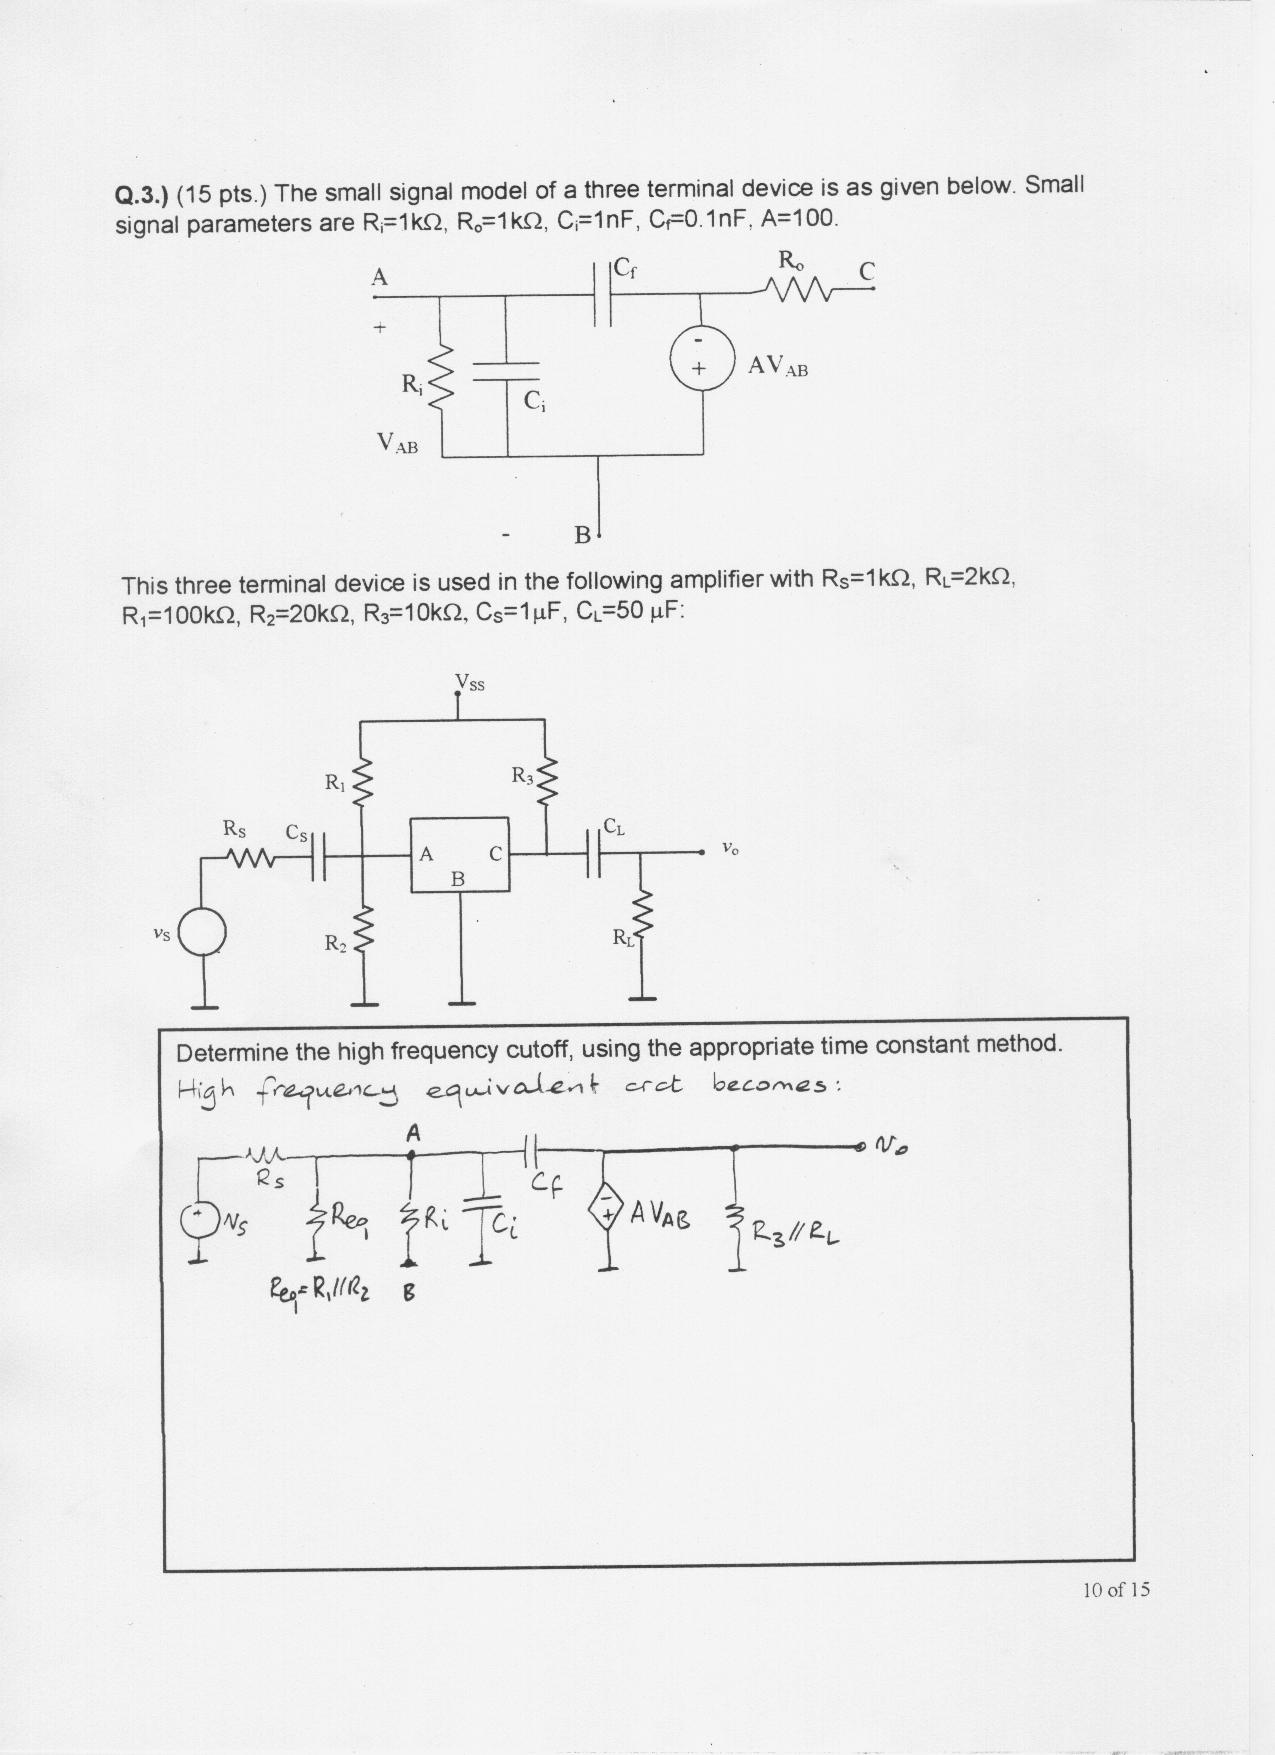 Q.3.) (15 pts.) The small signal model of a three terminal device is as given below. Small
signal parameters are Ri=1kΩ, Ro=1kΩ, Ci=1nF, Cf=0.1nF, A=100.
A
Cf
Ro
C
+
Ri
Ci
-
+
AVAB
VAB
-
B
This three terminal device is used in the following amplifier with RS=1kΩ, RL=2kΩ,
R1=100kΩ, R2=20kΩ, R3=10kΩ, CS=1µF, CL=50 µF:
VSS
R1
R3
RS
CS
CL
A
C
B
vo
vS
R2
RL
Determine the high frequency cutoff, using the appropriate time constant method.
High frequency equivalent crct becomes:
A
Rs
Cf
vo
+
vs
Req
Ri
Ci
-
+
AVAB
R3//RL
Req=R1//R2
B
10 of 15